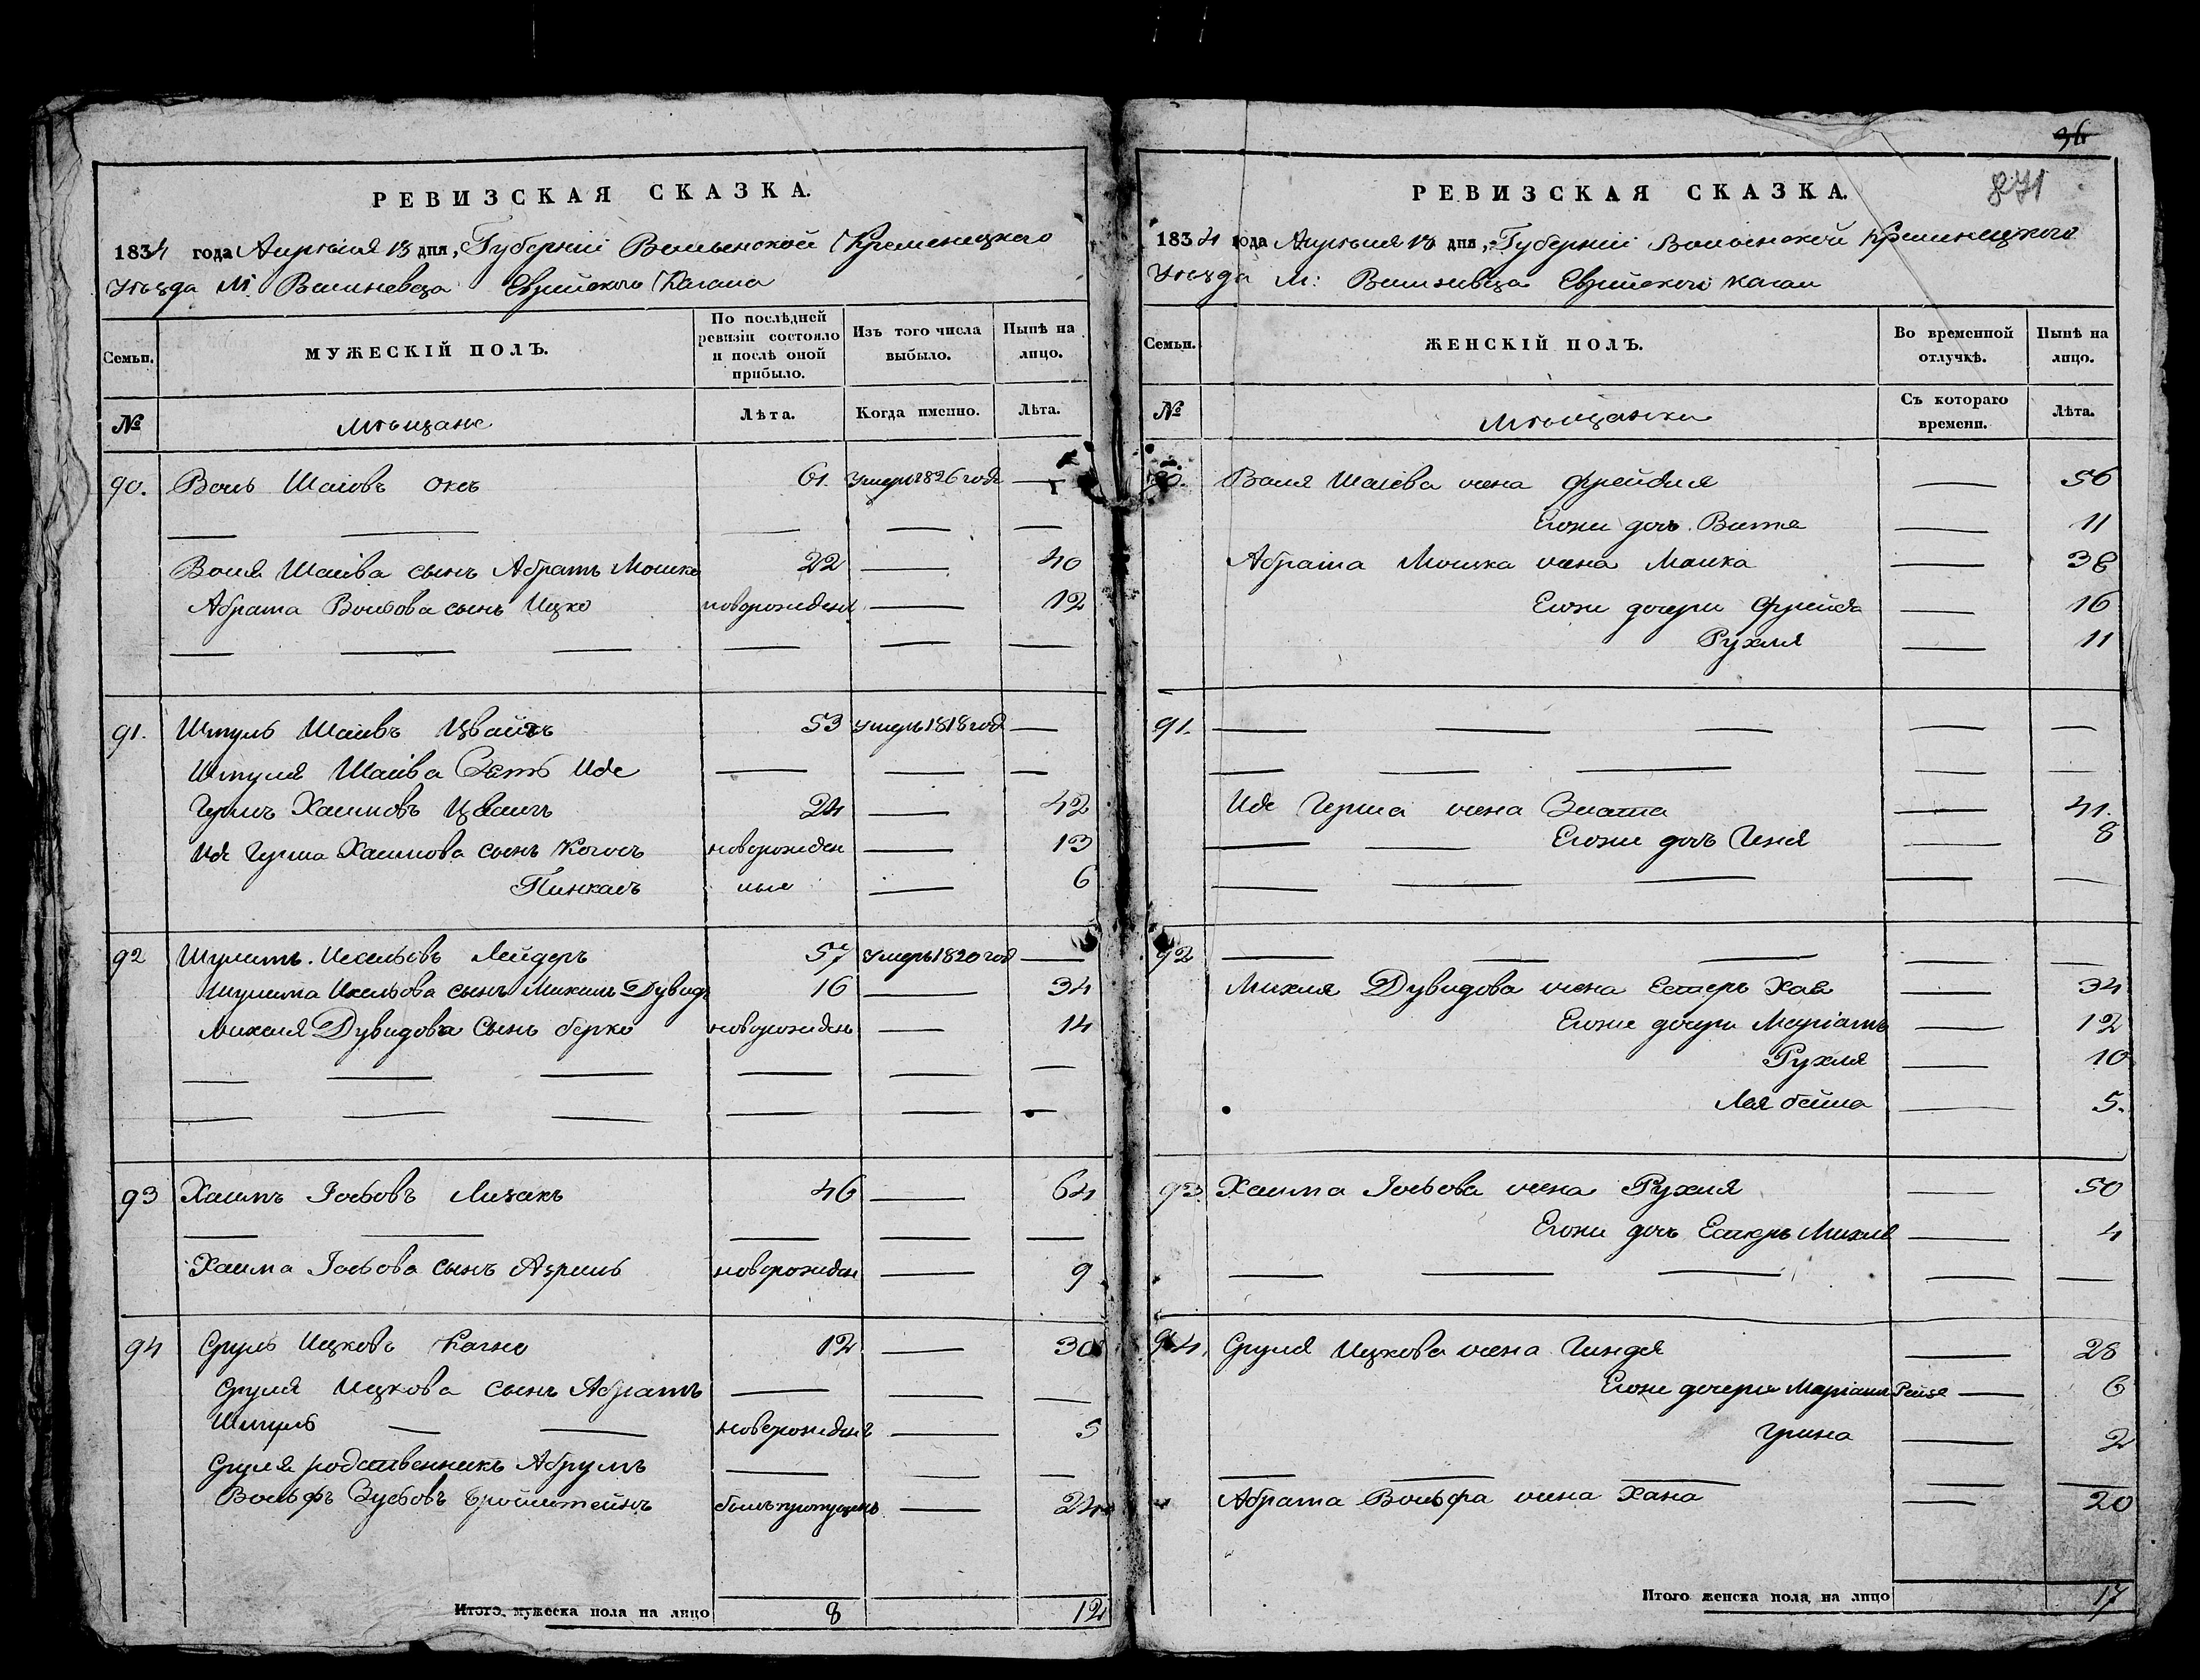 РЕВИЗСКАЯ СКАЗКА.
1834 года Апрѣля 13 дня, Губерніи Волынской Кременецкаго
Уѣзда М. Вишневца Еврейского Кагала
Семьи.
МУЖЕСКІЙ ПОЛЪ.
По послѣдней ревизіи состояло и послѣ оной прибыло.
Изъ того числа выбыло.
Нынѣ на лицо.
№
Мѣщане
Лѣта.
Когда именно.
Лѣта.
90. Воль Шаіовъ 61. Умеръ 1826 года —
— — — — —
Воля Шаіова сынъ Абрамъ Мошко 22 — 40
Абрама Волвова сынъ Ицко новорожденъ — 12
— — — — — —
91. Шмуль Шаіовъ 53 Умеръ 1818 год —
Шмуля Шаіова Зять Иде — — —
Гершъ Хаимовъ Цваигъ 24 — 42
Иде Герша Хаимова сынъ новорожден — 13
Пинкасъ ные — 6
92 Шулимъ Иосиовъ Лейдеръ 57 Умеръ 1820 год —
Шулима сынъ Михель Дувидъ 16 — 34
Михеля Дувидова Сынъ Берко новорожденъ — 14
— — — — — —
— — — — — —
93 Хаимъ Іосьовъ Лизакъ 46 — 64
— — — — —
Хаима Іосьова сынъ Азриль новорожден — 9
94 Сруль Ицковъ 12 — 30
Сруля Ицкова сынъ Абрамъ — — —
Шмуль — — новорожденъ — 5
Сруля родственникъ Абрумъ — — —
Вольфъ Зусьовъ былъ пропущенъ — 24
Итого. мужеска пола на лицо 8 12
36
871
РЕВИЗСКАЯ СКАЗКА.
1834 года Апрѣля 13 дня, Губерніи Волынской Кременецкого
Уѣзда М: Вишневца Еврейского Кагала
Семьи.
ЖЕНСКІЙ ПОЛЪ.
Во временной отлучкѣ.
Нынѣ на лицо.
№
Мѣщанки
Съ котораго времени.
Лѣта.
90. Воля Шаіова жена Фрейдля — 56
Егоже дочь Витя — 11
Абрама Мошка жена Малка — 38
Егоже дочери Фрейда — 16
Рухля — 11
91. — — — — —
— — — — —
Иде Герша жена Злата — 41.
— — Егоже дочь Геня — 8
— — — — —
92 — — — — —
Михля Дувидова жена Естеръ Хая — 34
Егоже дочери Маріямъ — 12
Рухля — 10
Лея бейла — 5.
93. Хаима Іосьова жена Рухля — 50
Егоже дочь Естеръ Михля — 4
— — — — —
94. Сруля Ицкова жена Гиндя — 28
Егоже дочери Маріамъ Рейзя — 6
— 2
— — — — —
Абрама Вольфа жена Хана — 20
Итого женска пола на лицо 17